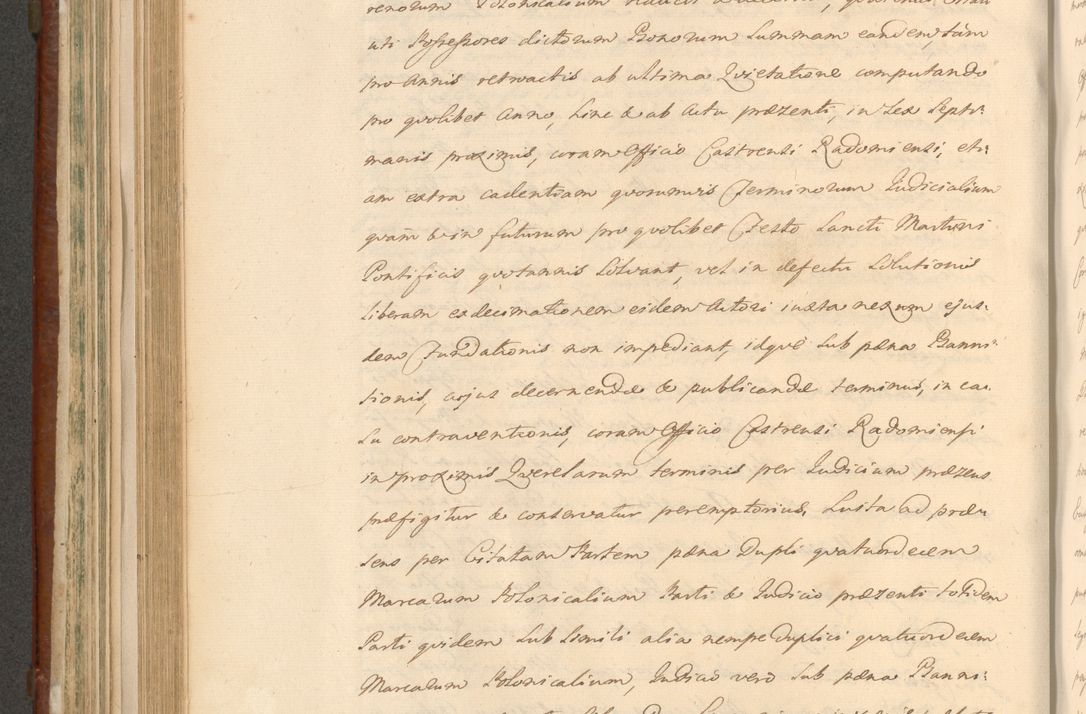 renorum Polonicalium
uti Possessores dictorum Bonorum Summam eandem, tàm
pro Annis retroactis ab ultima Qvietatione computando
pro qvolibet Anno, hinc & ab Actu præzenti, in sex Septi¬
manis proximis, coram Officio Castrensi Radomiensi, eti¬
am extra cadentiam qvorumvis Terminorum Iudicialium
qvam & in futurum pro qvolibet Festo Sancti Martini
Pontificis qvotannis Solvant, vel in defectu Solutionis
Liberam exdecimationem eidem Actori iuxta nexum ejus¬
dem Fundationis non impediant, idqve sub pæna Banni¬
tionis, cujus decernendæ & publicandæ terminus, in ca¬
su contraventionis, coram Officio Castrensi Radomiensi
in proximis Qverelarum terminis per Iudicium præzens
præfigitur & conservatur peremptorius. Luita ad præ¬
sens per Citatam Partem pæna Dupli qvatuordecem
Marcarum Polonicalium Parti & Iudicio præzenti totidem
Parti qvidem sub simili alia nempe Duplici qvatuordecem
Marcarum Polonicalium, Iudicio vero sub pæna Banni¬